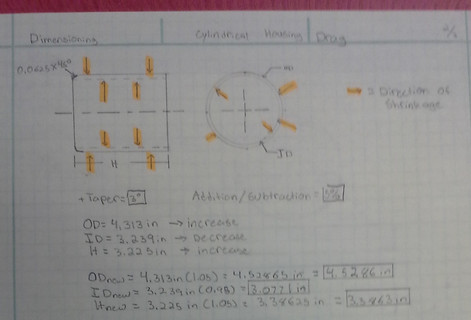 Dimensioning
Cylindrical Housing
Drag
0.0625 x 45°
OD
= Direction of Shrinkage
ID
H
+ Taper = 3°
Addition/Subtraction =
OD = 4.313 in → increase
ID = 3.239 in → Decrease
H = 3.225 in → increase
ODnew = 4.313 in (1.05) = 4.52865 in = 4.5286 in
IDnew = 3.239 in (0.95) = 3.0771 in
Hnew = 3.225 in (1.05) = 3.38625 in = 3.3863 in